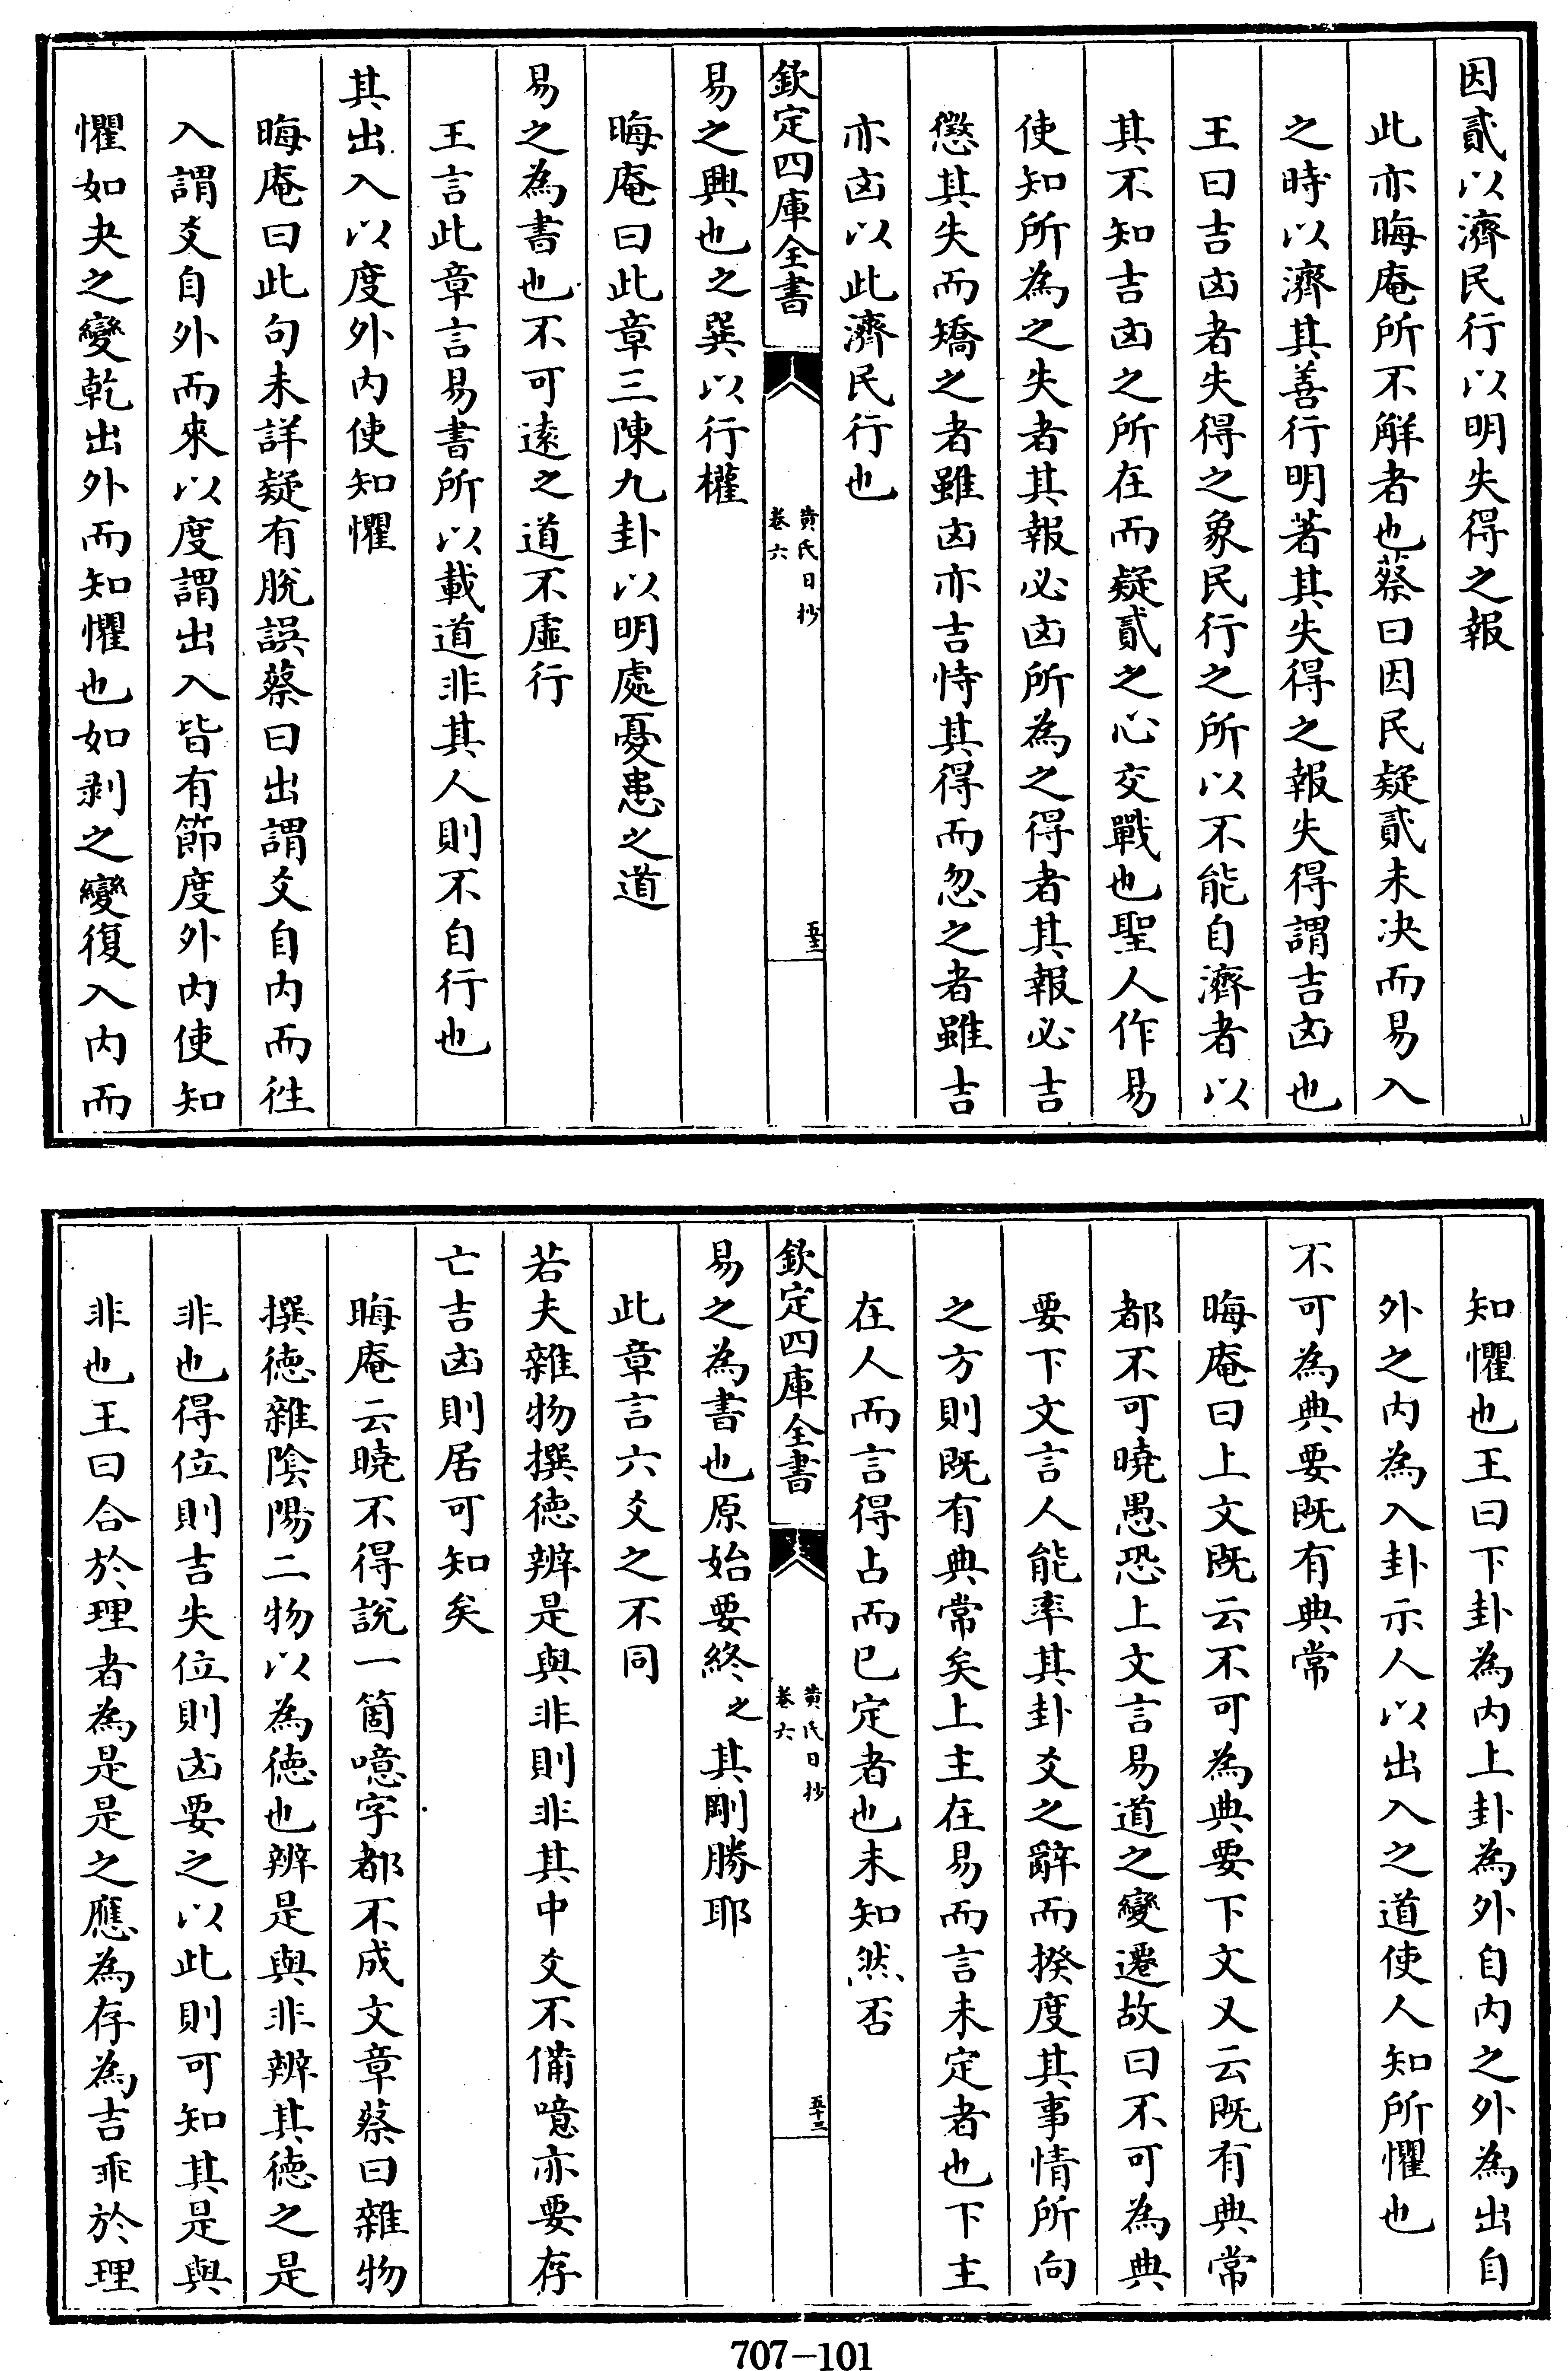 因貳以濟民行以明失得之報
此亦晦庵所不解者也蔡曰因民疑貳未决而易入
之時以濟其善行明著其失得之報失得謂吉凶也
王曰吉凶者失得之象民行之所以不能自濟者以
其不知吉凶之所在而疑貳之心交戰也聖人作易
使知所為之失者其報必凶所為之得者其報必吉
懲其失而矯之者雖凶亦吉恃其得而忽之者雖吉
亦凶以此濟民行也
欽定四庫全書
黄氏日抄
卷六
五十二
易之興也之巽以行權
晦庵曰此章三陳九卦以明處憂患之道
易之為書也不可逺之道不虛行
王言此章言易書所以載道非其人則不自行也
其出入以度外内使知懼
晦庵曰此句未詳疑有脫誤蔡曰出謂爻自内而徃
入謂爻自外而來以度謂出入皆有節度外内使知
懼如夬之變乾出外而知懼也如剥之變復入内而
知懼也王曰下卦為内上卦為外自内之外為出自
外之内為入卦示人以出入之道使人知所懼也
不可為典要既有典常
晦庵曰上文既云不可為典要下文又云既有典常
都不可曉愚恐上文言易道之變遷故曰不可為典
要下文言人能率其卦爻之辭而揆度其事情所向
之方則既有典常矣上主在易而言未定者也下主
在人而言得占而已定者也未知然否
欽定四庫全書
黄氏日抄
卷六
五十三
易之為書也原始要終之其剛勝耶
此章言六爻之不同
若夫雜物撰德辨是與非則非其中爻不備噫亦要存
亡吉凶則居可知矣
晦庵云曉不得說一箇噫字都不成文章蔡曰雜物
撰德雜陰陽二物以為德也辨是與非辨其德之是
非也得位則吉失位則凶要之以此則可知其是與
非也王曰合於理者為是是之應為存為吉乖於理
707-101